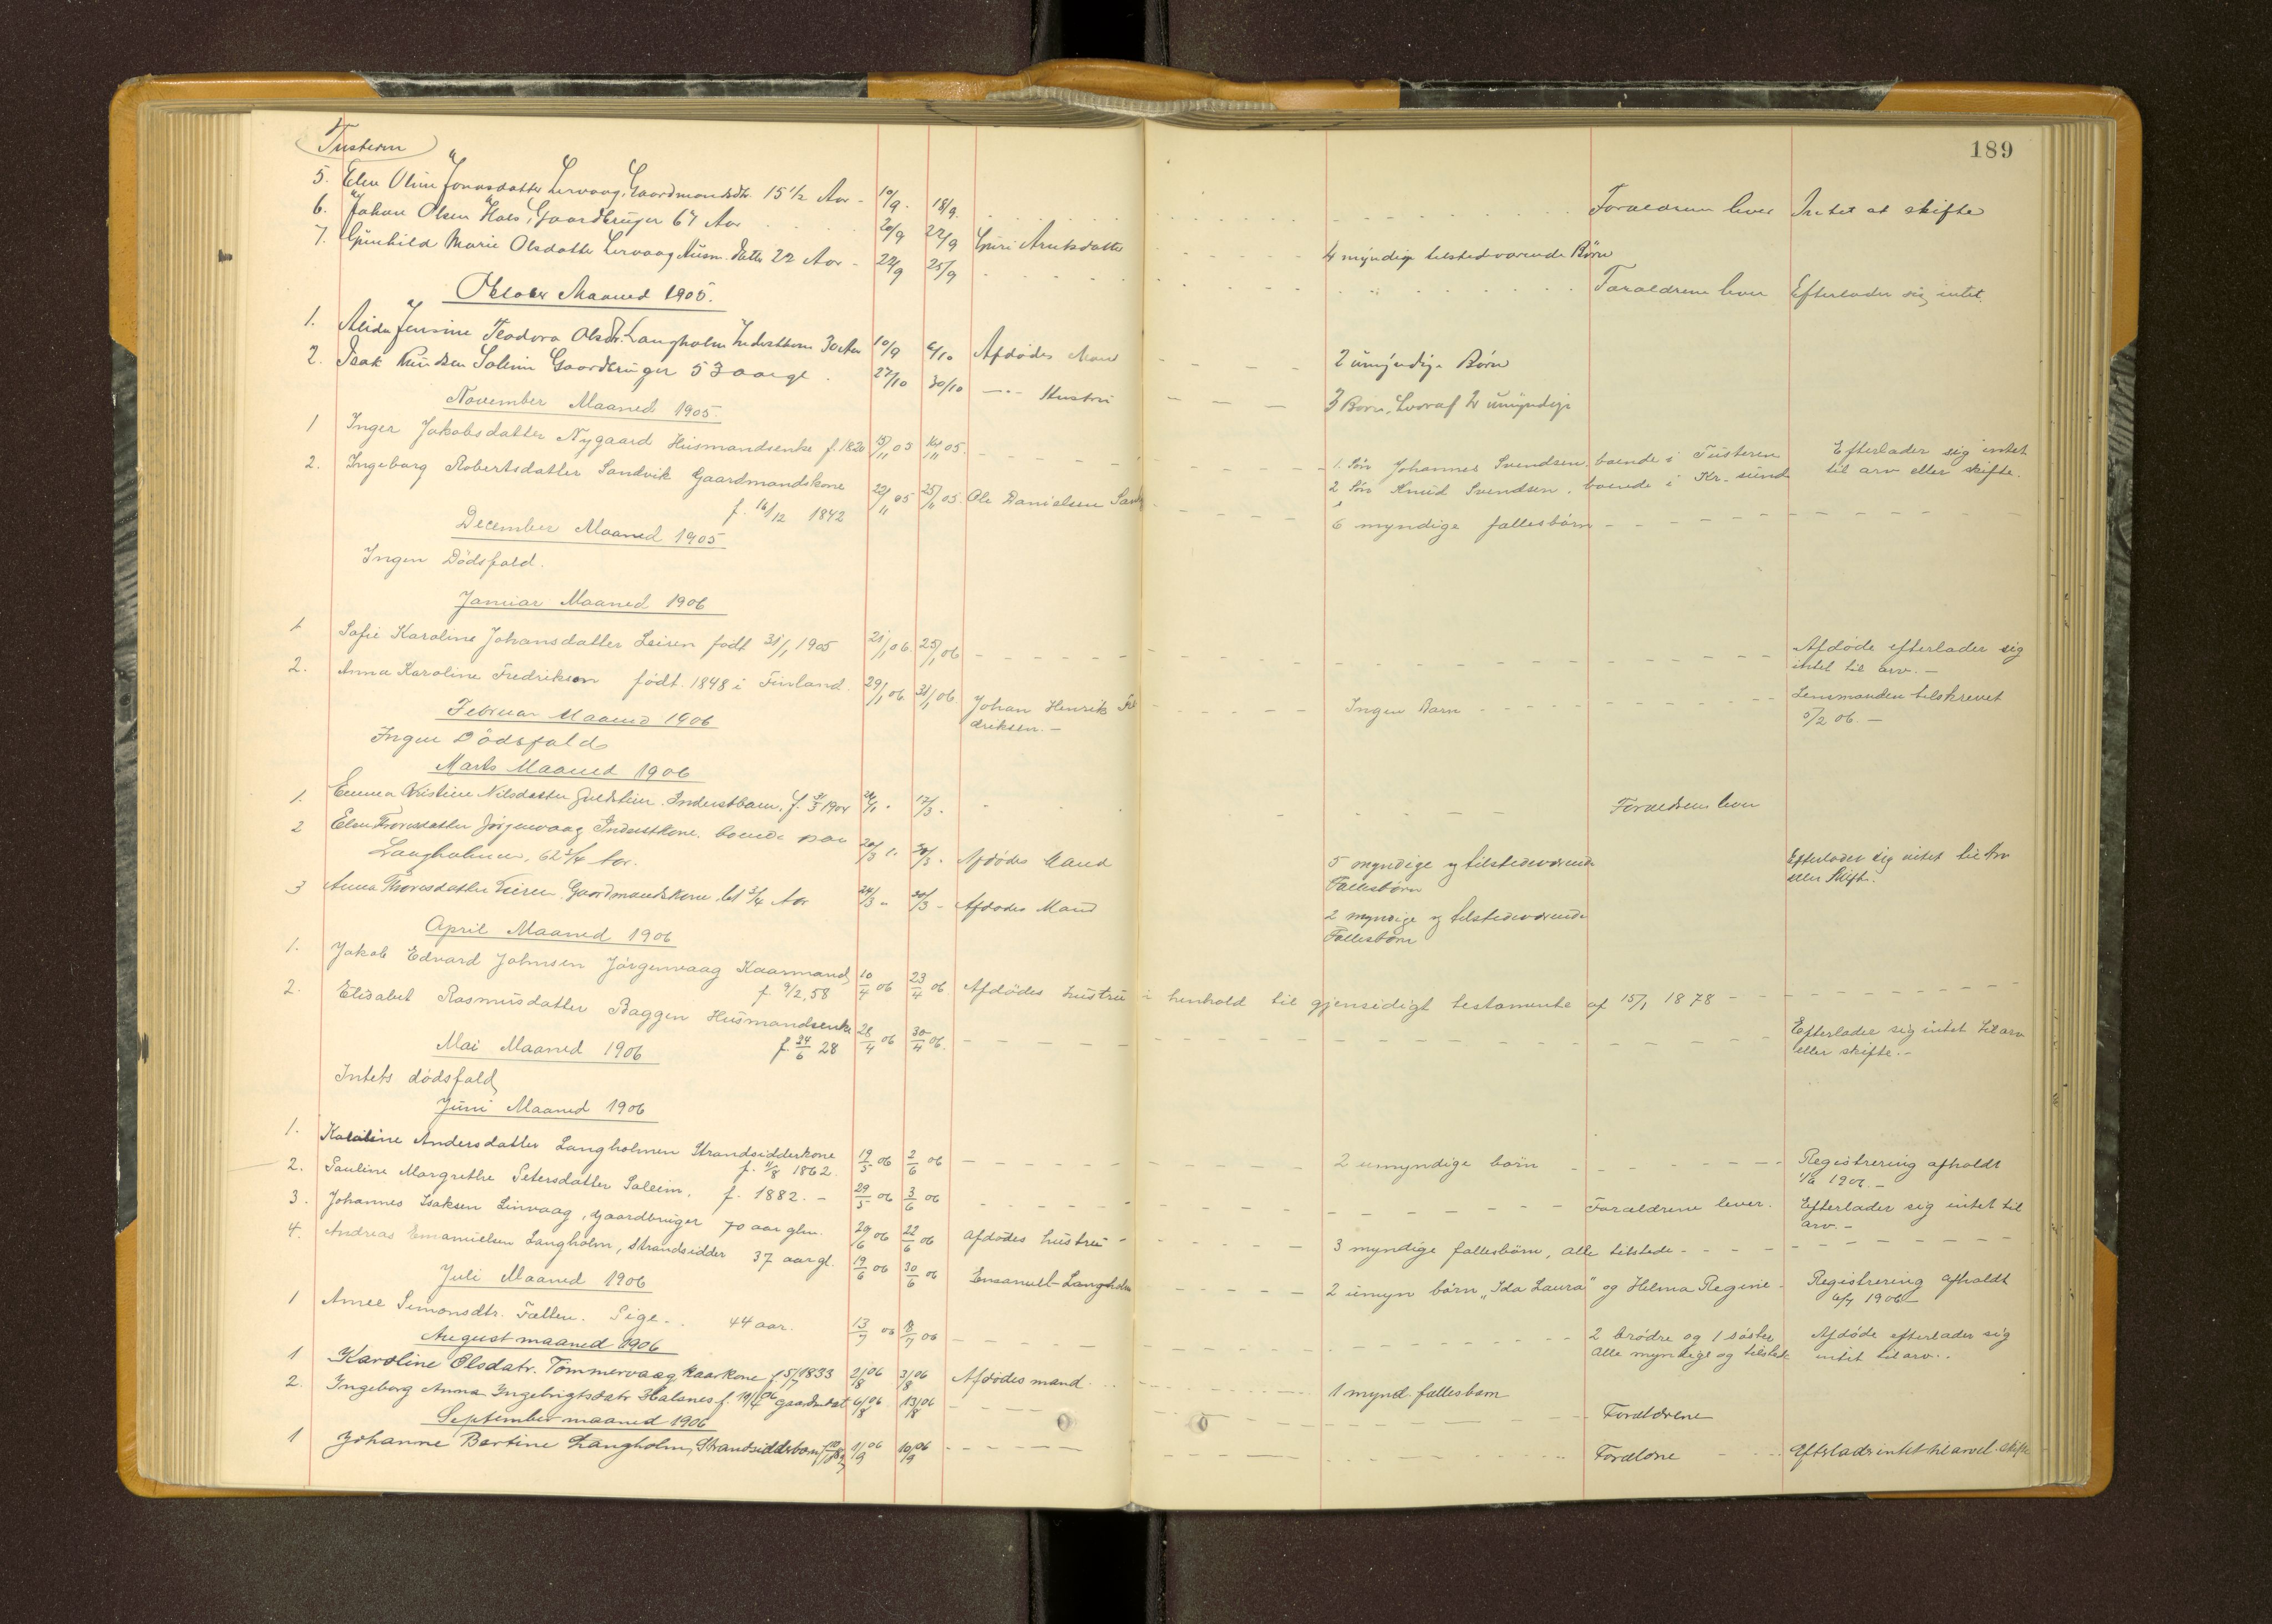 Tusteren
189
5. Elen Oline Jonasdatter Lervaag, Gaardmandsdtr. 15 1/2 Aar - 10/9. 18/9. Forældrene lever Intet at skifte
6. Johan Olsen Hals, Gaardbruger 67 Aar 20/9 22/9 Guri Arntsdatter 4 myndige tilstedværende Børn
7. Gunhild Marie Olsdatter Lervaag Husm. datter 22 Aar - 22/9 25/9 Forældrene lever Efterlader sig intet.
Oktober Maaned 1905.
1. Alida Jensine Teodora Olsdtr. Langholm Inderstkone 30 Aar 10/9 6/10 Afdødes Mand 2 umyndige Børn
2. Isak Knudsen Soleim Gaardbruger 53 aargl. 27/10 30/10 —"— Hustru 3 Børn, hvoraf 2 umyndige
November Maaned 1905.
1 Inger Jakobsdatter Nygaard Husmandsenke f. 1820 /11 05 14/11 05. 1. Søn Johannes Svendsen, boende i Tusteren Efterlader sig intet
2 Søn Knud Svendsen, boende i Kr-sund til arv eller skifte.
2. Ingeborg Robertsdatter Sandvik Gaardmandskone 22/11 05 25/11 05. Ole Danielsen 6 myndige fællesbørn
f. 16/12 1842
December Maaned 1905
Ingen Dödsfald.
Januar Maaned 1906
1 Sofie Karoline Johansdatter Leiren født 31/1 1905 21/1 06. 25/1 06 Afdøde efterlader sig
intet til arv. —
2. Anna Karoline Fredriksen født 1848 i Finland. 29/1 06. 31/1 06. Johan Henrik Fre Ingen Barn Lensmanden tilskrevet
driksen. — 5/2 06. —
Februar Maaned 1906
Ingen Dödsfald
Marts Maaned 1906
1. Emma Kristine Nilsdatter Inderstbarn, f. 1904 17/3. Forældrene lever
2 Elen Thoresdatter Jørgenvaag Inderstkone, boende paa 20/3 " 30/3 " Afdødes Mand 5 myndige og tilstedeværende Efterlader sig intet til Arv
Langholmen, 62 3/4 Aar. Fællesbørn eller Skifte.
3 Anna Thoresdatter Leiren Gaardmandskone, 61 3/4 Aar 24/3 " 30/3 - Afdødes Mand 2 myndige og tilstedeværende
Fællesbørn
April Maaned 1906
1. Jakob Edvard Johnsen Jørgenvaag Kaarmand 10/4 06 23/4 06. Afdødes hustru i henhold til gjensidigt testamente af 15/1 1878
f. 9/2, 58
2. Elisabet Rasmusdatter Baggen Husmandsenke 28/4 06 30/4 06. Efterlader sig intet til arv
f. 24/6 28 eller skifte. -
Mai Maaned 1906
Intets dødsfald
Juni Maaned 1906
1. Karoline Andersdatter Langholmen Strandsidderkone 19/5 06 2/6 06 2 umyndige børn Registrering afholdt
f. /8 1862. 1/6 1906. -
2. Pauline Margrethe Petersdatter Saleim, f. 1882. - 29/5 06 3/6 06 Forældrene lever. Efterlader sig intet til
arv. -
3. Johannes Isaksen Linvaag, gaardbruger 70 aar glm. /6 06 22/6 06 afdødes hustru 3 myndige fællesbørn, alle tilstede
4. Andreas Emanuelsen Langholm, Strandsidder 37 aar gl. 19/6 06 30/6 06 Emanuel Langholm 2 umyn børn "Ida Laura" og Hilma Regine Registrering afholdt
6/7 1906
Juli Maaned 1906
1 Anne Simonsdtr. Fætten. Pige. . 44 aar. 13/7 06 18/7 06 2 brødre og 1 søster Afdøde efterlader sig
alle myndige og tilstede intet til arv. .
August maaned 1906
1 Karoline Olsdatr. Tömmervaag, kaarkone f. 5/7 1833 2/8 06 3/8 06 Afdödes mand 1 mynd. fællesbarn
2. Ingeborg Anna Ingebrigtsdatr Halsnes f. 19/4 06 gaardm.dat 6/8 06 13/8 06 Forældrene
September maaned 1906
1 Johanne Bertine Langholm, Strandsidderbarn 1/9 06 10/9 06 Forældrene Efterlader intet til arv el. skifte